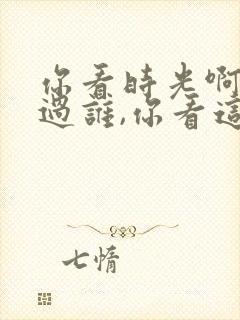 你看時光啊
過誰,你看這
七惰